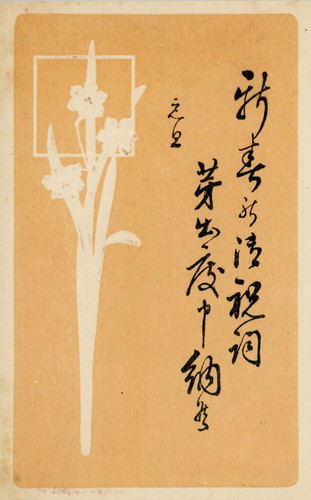 新春の御祝詞
芽出度申納候
元旦